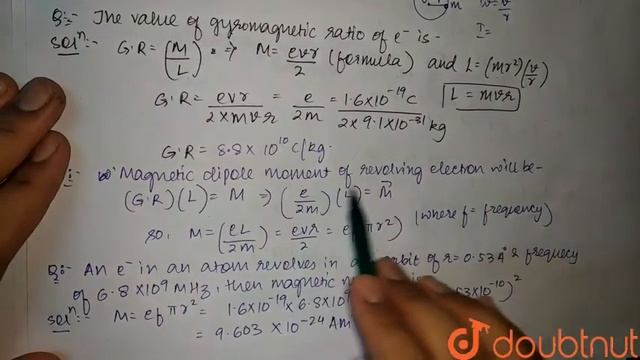 m w=v/r
Q:- The value of gyromagnetic ratio of e⁻ is - I=
Solⁿ:- G.R = (M/L) . => M = evr/2 (formula) and L = (mr²)(v/r)
G.R = evr/2×mvr = e/2m = 1.6×10⁻¹⁹C/2×9.1×10⁻³¹kg L = mvr
G.R = 8.8 × 10¹⁰ C/kg.
Magnetic dipole moment of revolving electron will be-
(G.R)(L) = M => (e/2m)(L) = M⃗
so, M = (eL/2m) = evr/2 = πr²) (where f = frequency)
Q:- An e⁻ in an atom revolves in orbit of r=0.53A° & frequecy
of 6.8×10⁹ MHz, then magnetic
Solⁿ:- M = efπr² = 1.6×10⁻¹⁹×6.8×10 ×10⁻¹⁰)²
= 9.603 × 10⁻²⁴ Am
doubtnut